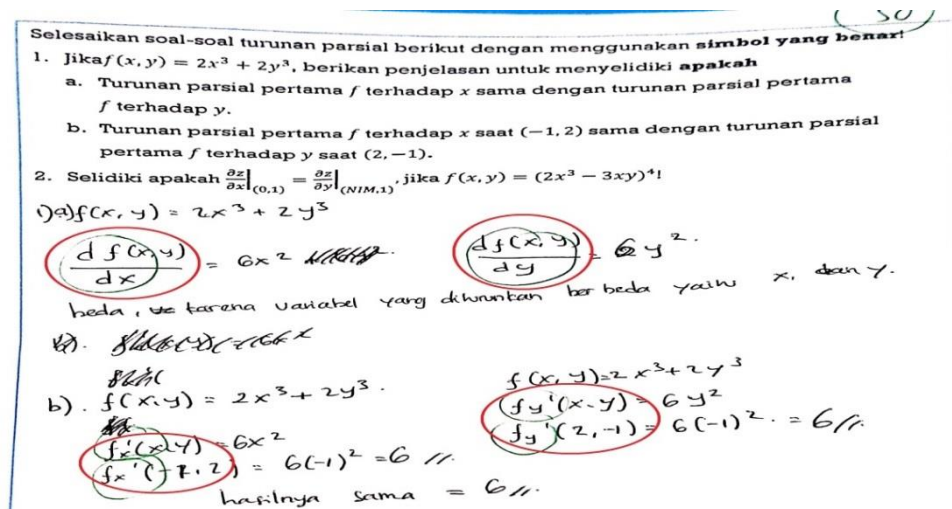 50
Selesaikan soal-soal turunan parsial berikut dengan menggunakan simbol yang benar!
1. Jikaf(x, y) = 2x³ + 2y³, berikan penjelasan untuk menyelidiki apakah
a. Turunan parsial pertama f terhadap x sama dengan turunan parsial pertama
f terhadap y.
b. Turunan parsial pertama f terhadap x saat (−1, 2) sama dengan turunan parsial
pertama f terhadap y saat (2, −1).
2. Selidiki apakah ∂z/∂x|(0,1) = ∂z/∂y|(NIM,1), jika f(x, y) = (2x³ − 3xy)⁴!
1) a) f(x, y) = 2x³ + 2y³
d f(x,y)/dx = 6x² df(x,y)/dy = 6y².
beda, karena variabel yang diturunkan ber beda yaitu x, dan y.
b). f(x,y) = 2x³ + 2y³. f(x, y) = 2x³ + 2y³
fx'(x,y) = 6x² fy'(x-y) = 6y²
fx'(-1,2) = 6(-1)² = 6 //. fy'(2,-1) = 6(-1)². = 6 //.
hasilnya sama = 6 //.